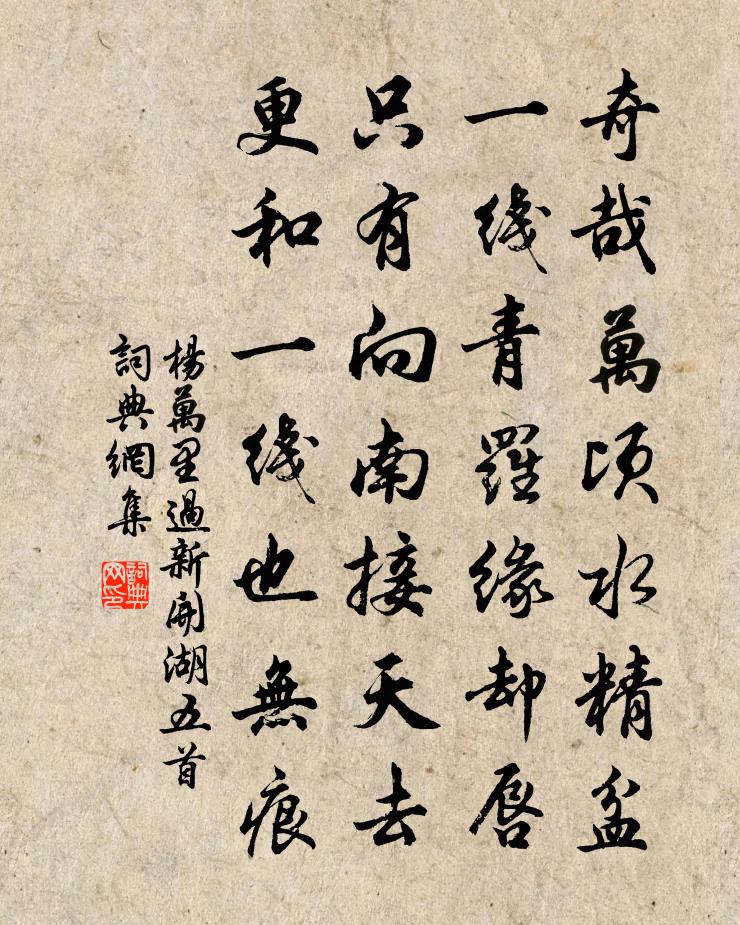 奇哉萬頃水精盆
一綫青羅緣却唇
只有向南接天去
更和一綫也無痕
楊萬里過新開湖五首
詞典網集
詞典网印